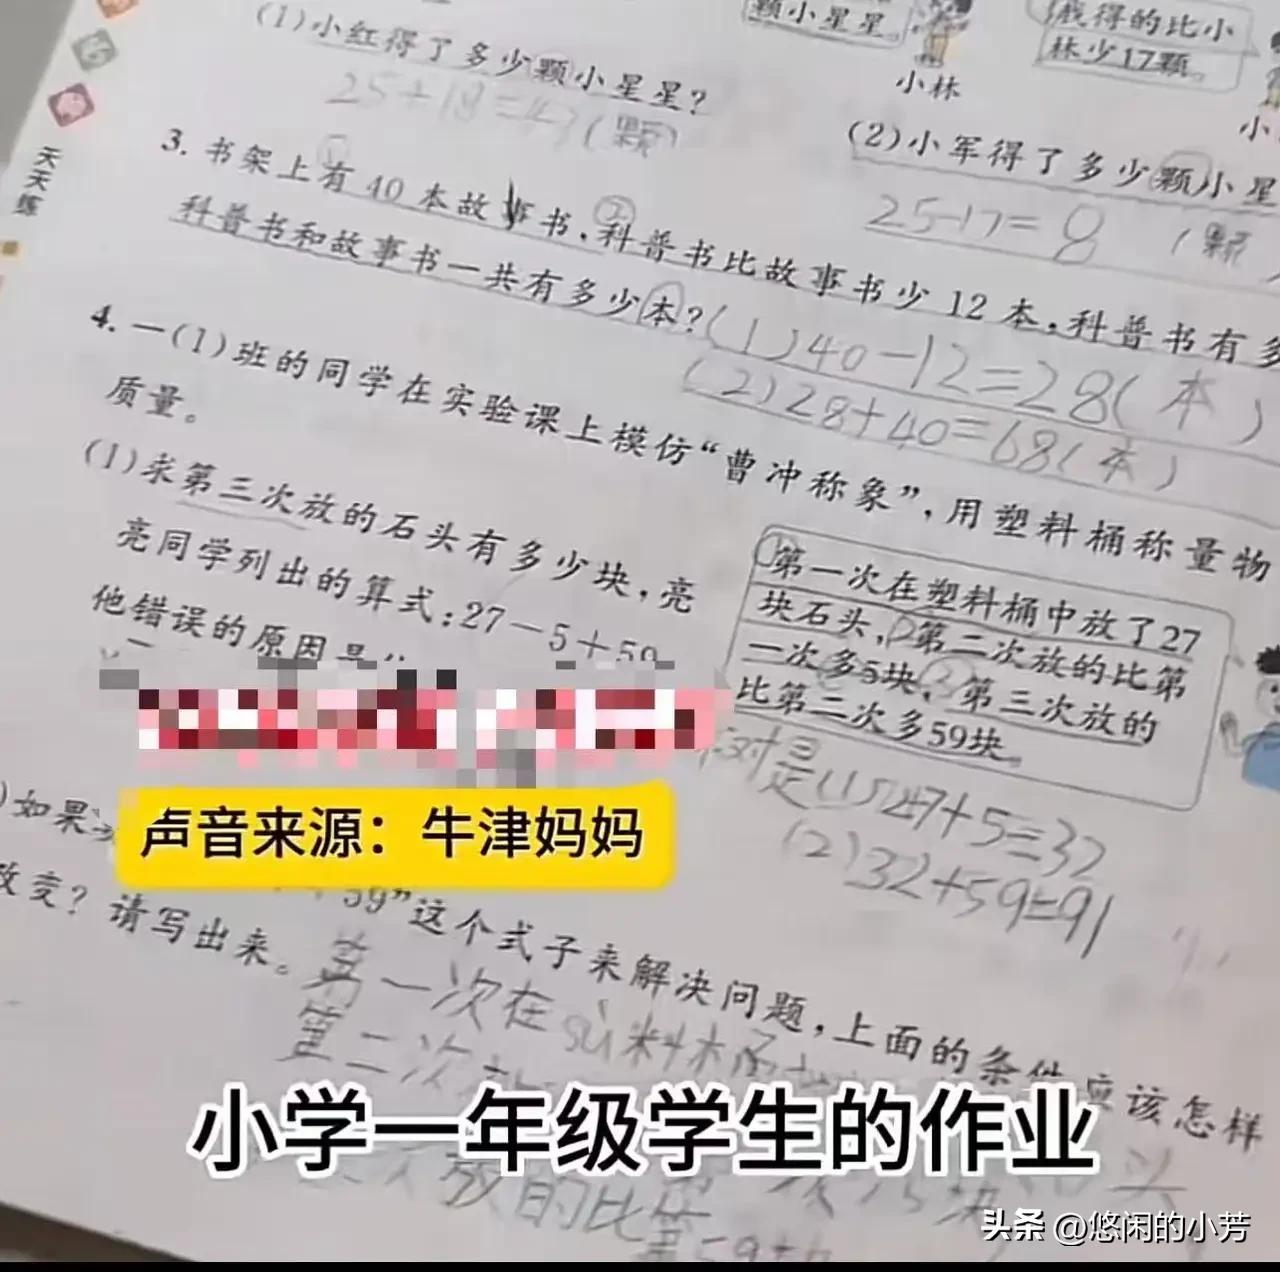 (1)小红得了多少颗小星星?
25+18=43(颗)
颗小星星。
小林
我得的比小
林少17颗。
小
(2)小军得了多少颗小星
25-17=8 (颗
天天练
3. 书架上有40本故事书,科普书比故事书少12本,科普书有多
科普书和故事书一共有多少本?
(1)40-12=28(本)
(2)28+40=68(本)
4. 一(1)班的同学在实验课上模仿“曹冲称象”,用塑料桶称量物
质量。
(1)求第三次放的石头有多少块,亮
亮同学列出的算式:27-5+59
他错误的原因是
①第一次在塑料桶中放了27
块石头,②第二次放的比第
一次多5块,③第三次放的
比第二次多59块。
对是(1)27+5=32
(2)32+59=91
声音来源:牛津妈妈
)如果
59”这个式子来解决问题,上面的条件应该怎样
改变?请写出来。
第一次在sù料桶
第二次
小学一年级学生的作业
放的比第
头
头条 @悠闲的小芳